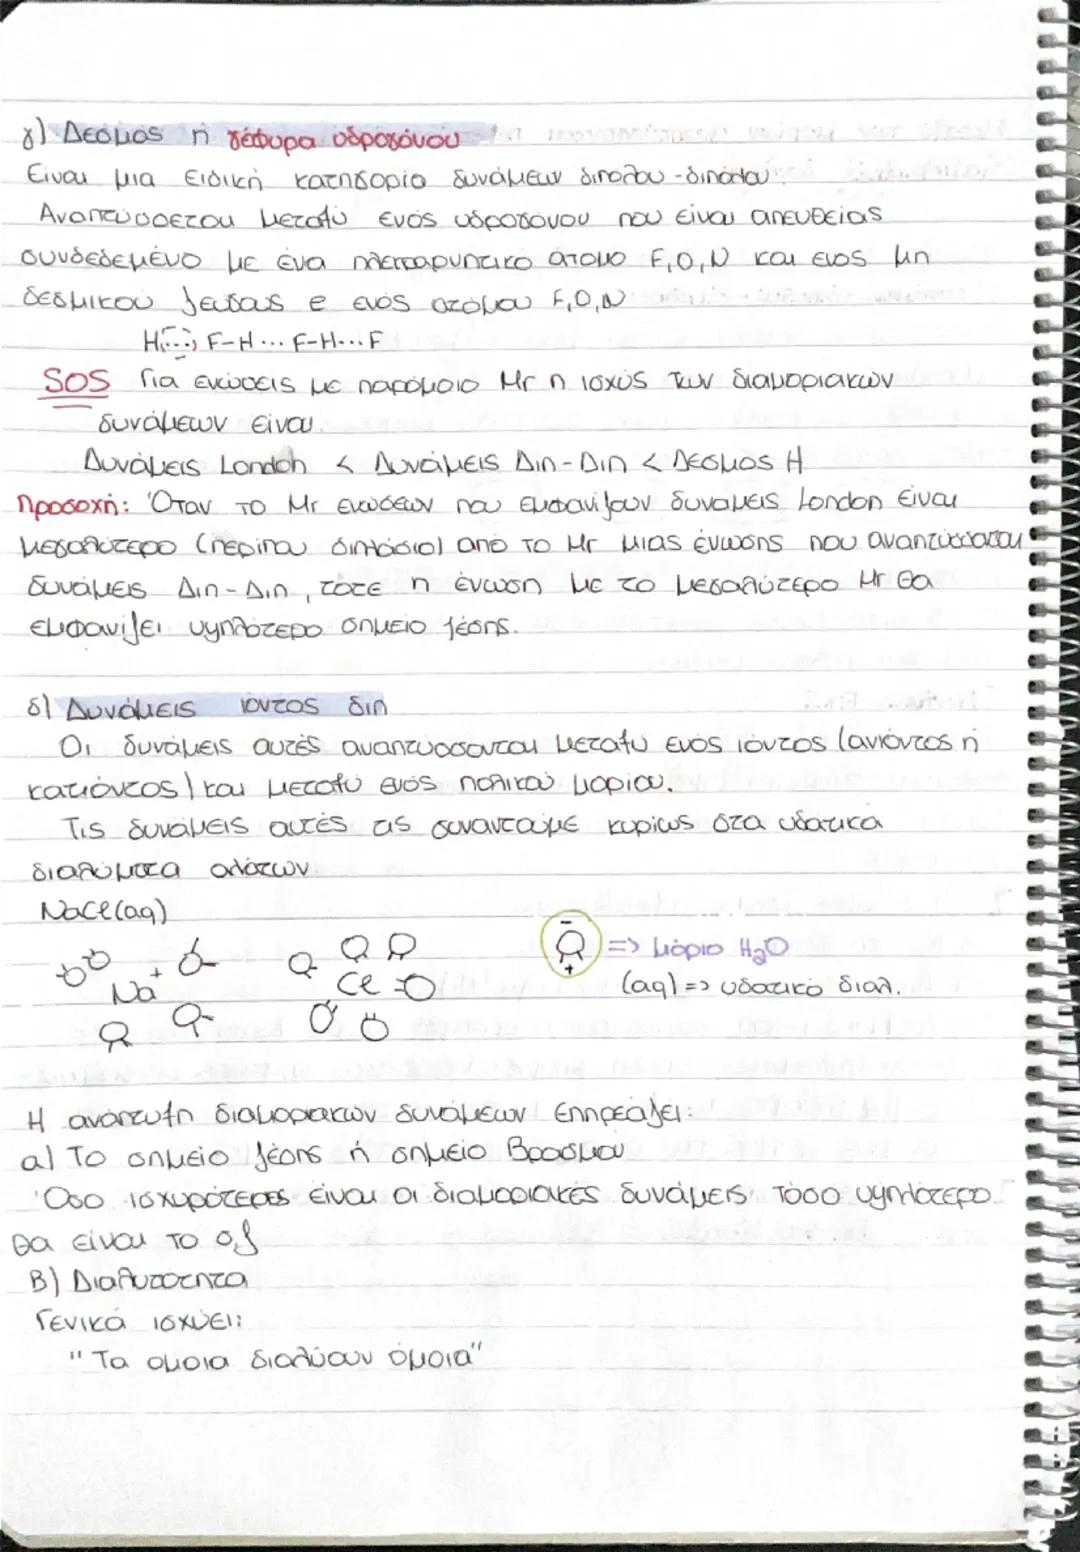 γ) Δεσμός ή γέφυρα υδρογόνου
Είναι μια ειδική κατηγορία δυνάμεων διπόλου-διπόλου.
Αναπτύσσεται μεταξύ ενός υδρογόνου που είναι απευθείας
συνδεδεμένο με ένα ηλεκτραρνητικό άτομο F,O,N και ενός μη
δεσμικού ζεύγους e ενός ατόμου F,O,N
F-H... F-H...F
SOS Για ενώσεις με παρόμοιο Mr η ισχύς των διαμοριακών
δυνάμεων είναι.
Δυνάμεις London < Δυνάμεις Διπ-Διπ < Δεσμός H
Προσοχή: Όταν το Mr ενώσεων που εμφανίζουν δυνάμεις London είναι
μεγαλύτερο (περίπου διπλάσιο) από το Mr μιας ένωσης που αναπτύσσεται
δυνάμεις Διπ-Διπ, τότε η ένωση με το μεγαλύτερο Mr θα
εμφανίζει υψηλότερο σημείο ζέσης.
δ) Δυνάμεις ιόντος διπ
Οι δυνάμεις αυτές αναπτύσσονται μεταξύ ενός ιόντος (ανιόντος ή
κατιόντος) και μεταξύ ενός πολικού μορίου.
Τις δυνάμεις αυτές τις συναντάμε κυρίως στα υδατικά
διαλύματα αλάτων
NaCl(aq)
- => μόριο H₂O
+
Na + Cl - (aq) => υδατικό διαλ.
Η ανάπτυξη διαμοριακών δυνάμεων επηρεάζει:
α) Το σημείο ζέσης ή σημείο Βρασμού
Όσο ισχυρότερες είναι οι διαμοριακές δυνάμεις, τόσο υψηλότερο
θα είναι το σ,ζ
Β) Διαλυτότητα
Γενικά ισχύει:
"Τα όμοια διαλύουν όμοια"